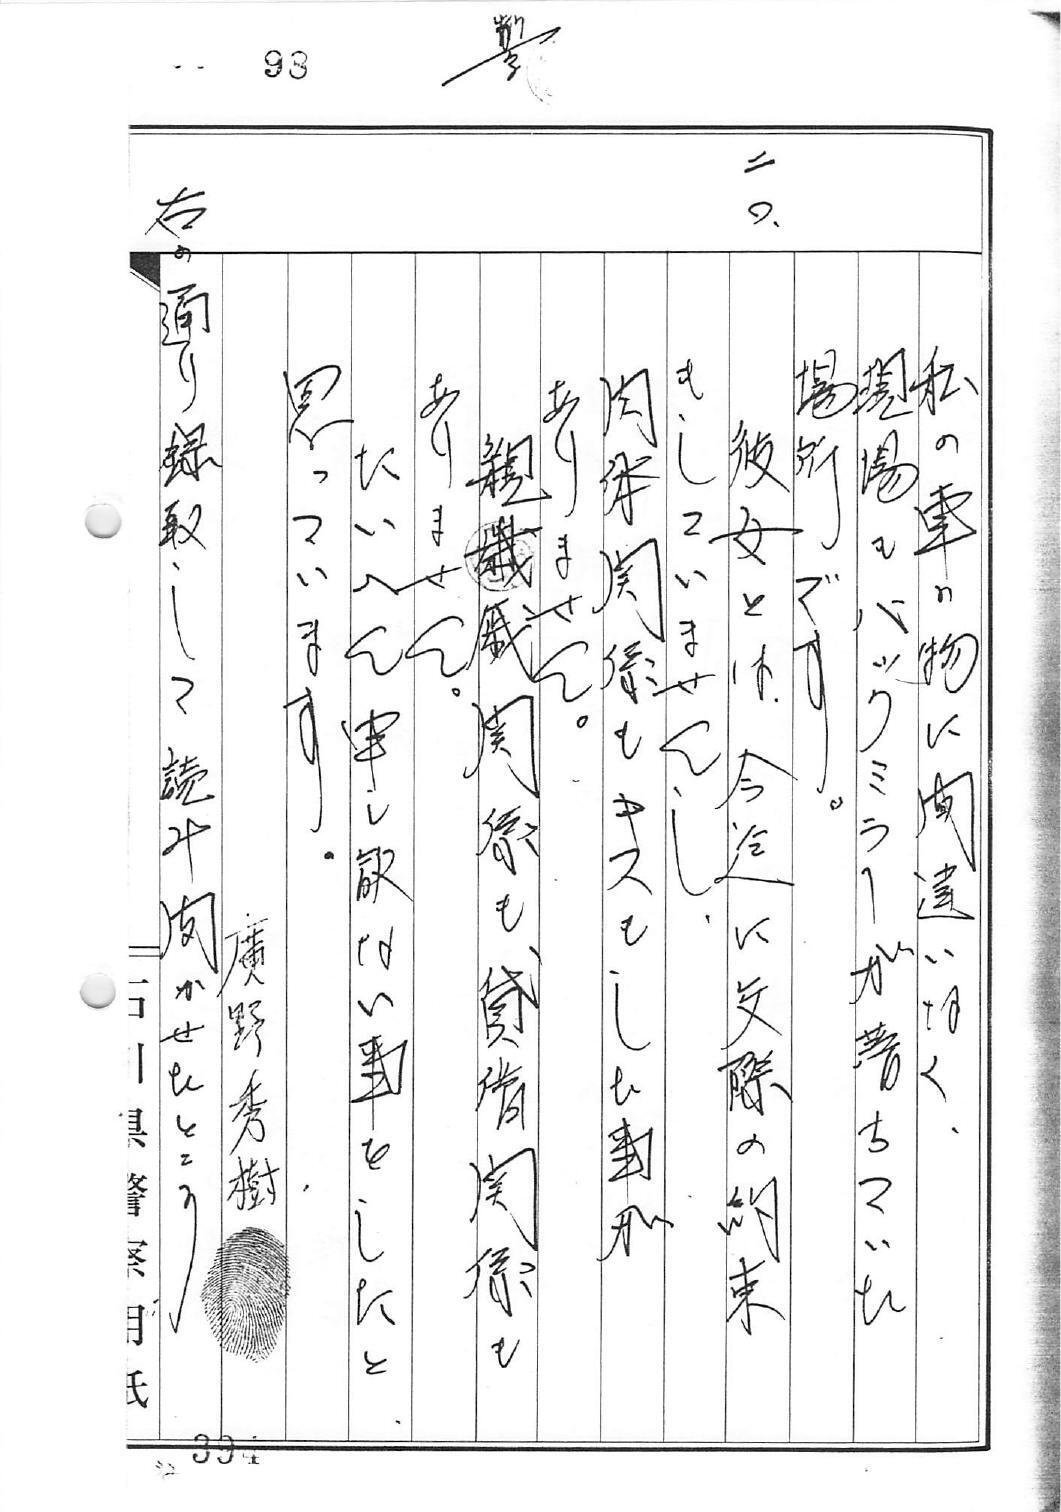 93
削
字
私の車の物に間違いなく、
現場もバックミラーが落ちていた
場所です。
二〇、
彼女とは、今迄に交際の約束
もしていませんし、
肉体関係もキスもした事が
ありません。
親戚関係も、貸借関係も
ありません。
たいへん申し訳ない事をしたと、
思っています。
廣野秀樹
右の通り録取して読み聞かせたところ
石川県警察用紙
394